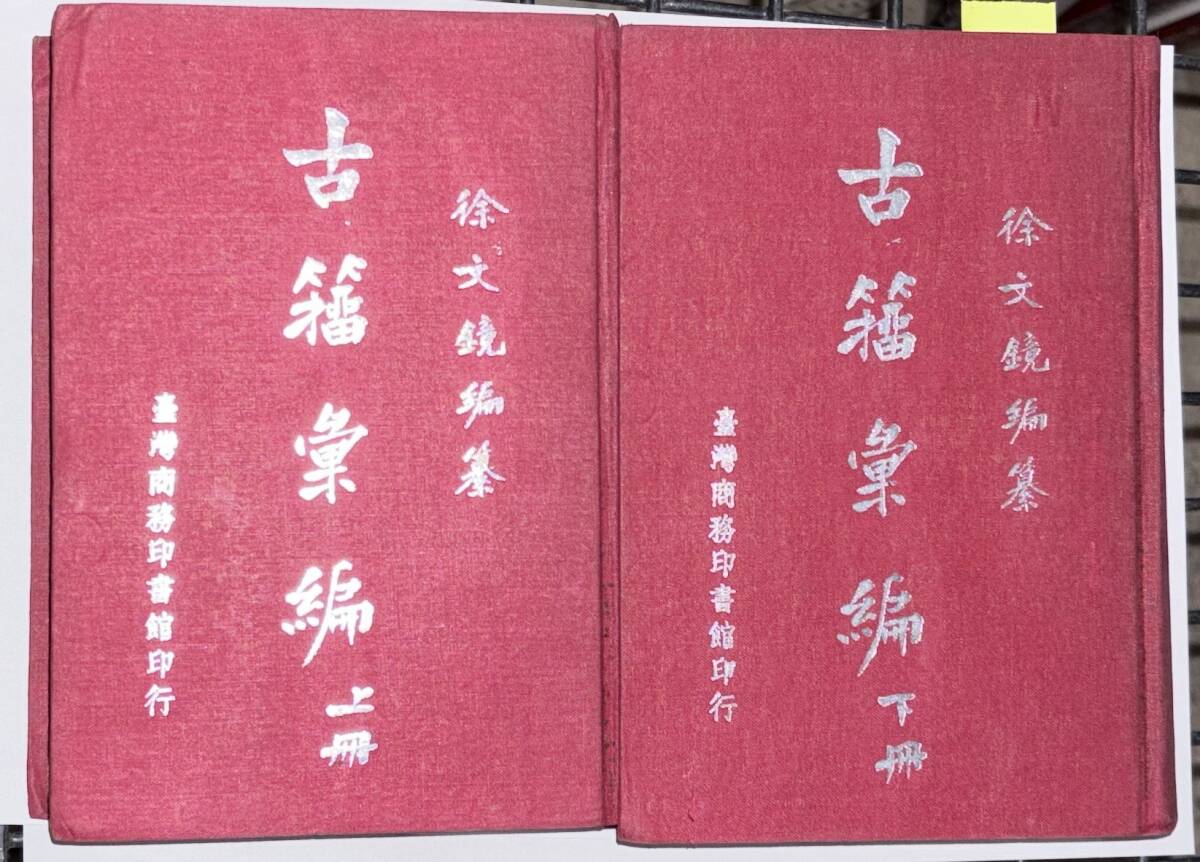 徐文鏡編纂
古籀彙編 上冊
臺灣商務印書館印行
徐文鏡編纂
古籀彙編 下冊
臺灣商務印書館印行